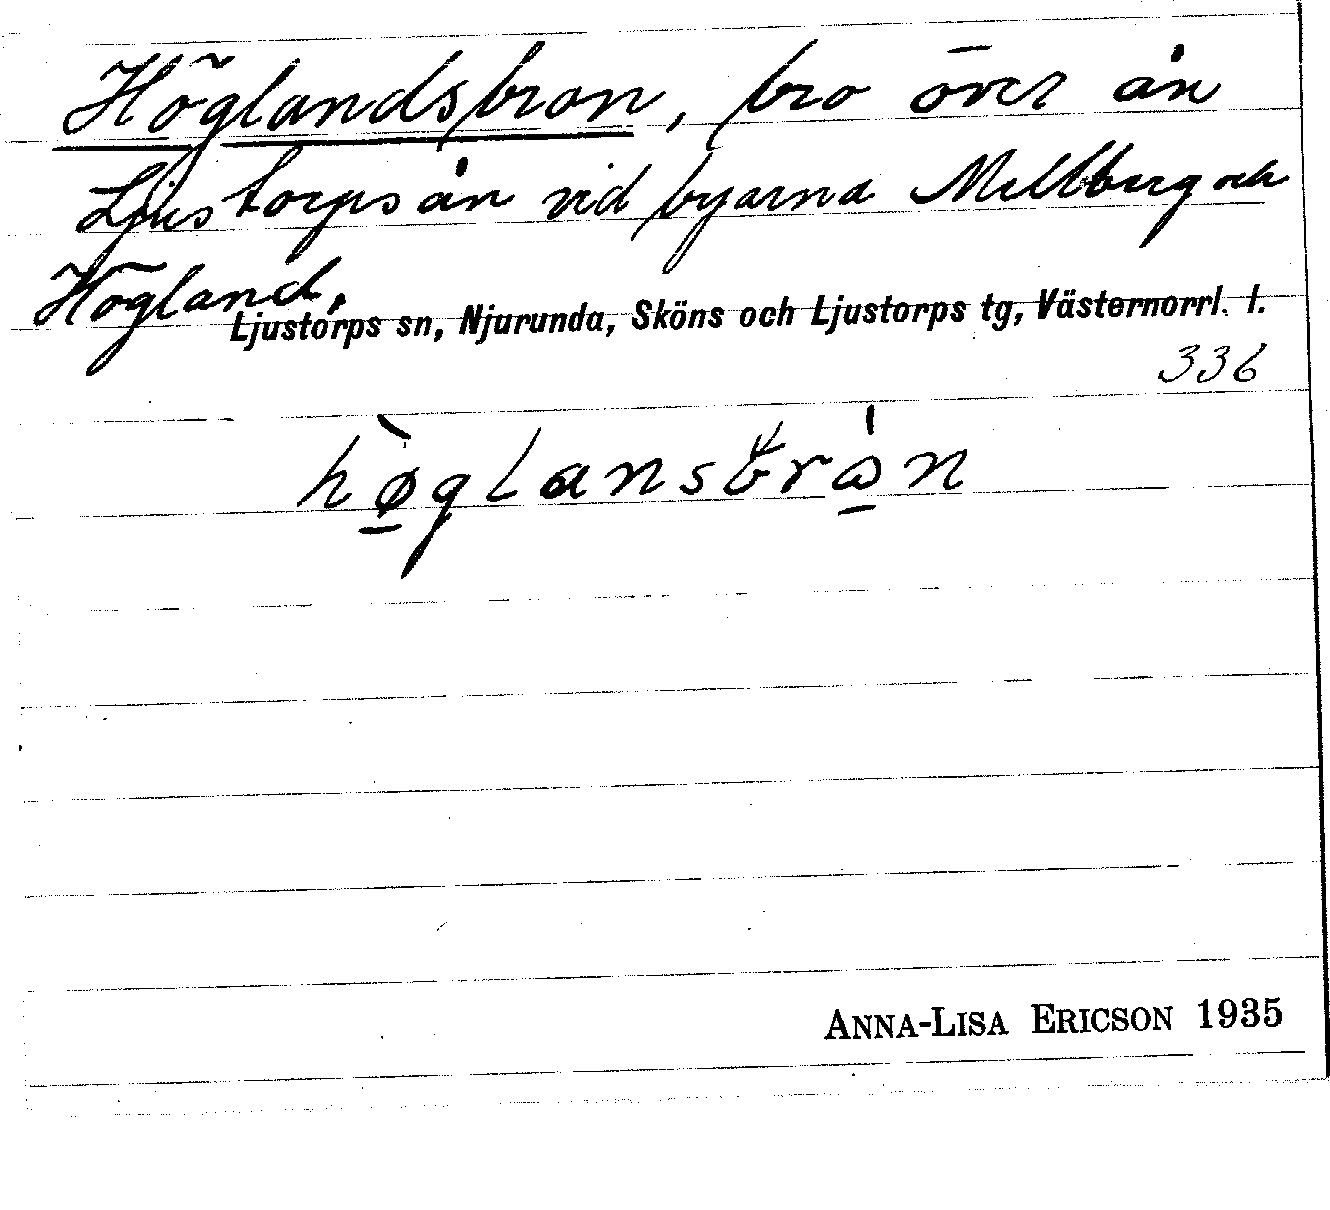 Höglandsbron, bro över ån
Ljustorpsån vid byarna Mellberg och
Högland.
Ljustorps sn, Njurunda, Sköns och Ljustorps tg, Västernorrl. l.
336
hø̀glansbrån
ANNA-LISA ERICSON 1935